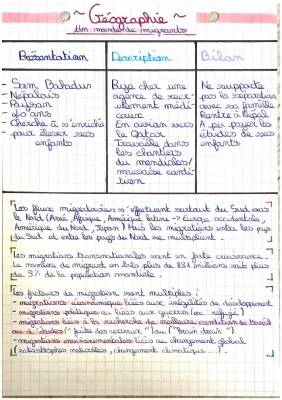 ~ Géographie ~
Un monde de migrants
Présentation
Description
Bilan
- Sam Bahadur
- Népalais
- Paysan
- 40 ans
- Cherche à s'enrichir
- pour élever ses
enfants
Paye cher une
agence de
En avion vers
le Qatar
Travaille dans
les chantiers
du mondial
mauvaise condi-
tion
Ne supporte
pas la séparation
avec sa famille
Rentre à Népal
A pu payer les
études de ses
enfants
Les flux migratoires s'effectuent surtout du Sud vers
le Nord (Asie, Afrique, Amérique latine -> Europe occidentale,
Amérique du Nord, Japon) Mais les migrations entre les pays
du Sud et entre les pays du Nord se multiplient.
Les migrations transnationales sont en forte croissance.
Le nombre de migrant en 2020 plus de 281 millions soit plus
de 3% de la population mondiale.
Les facteurs de migration sont multiples :
- migrations économiques liées aux inégalités de développement
- migrations politiques liées aux guerres (ex : réfugié)
- migrations liées à la recherche de meilleure condition de travail
ou d'études ("fuite des cerveaux" ou ("Brain drain").
- migrations environnementales liées au changement global
(catastrophes naturelles, changement climatique...)